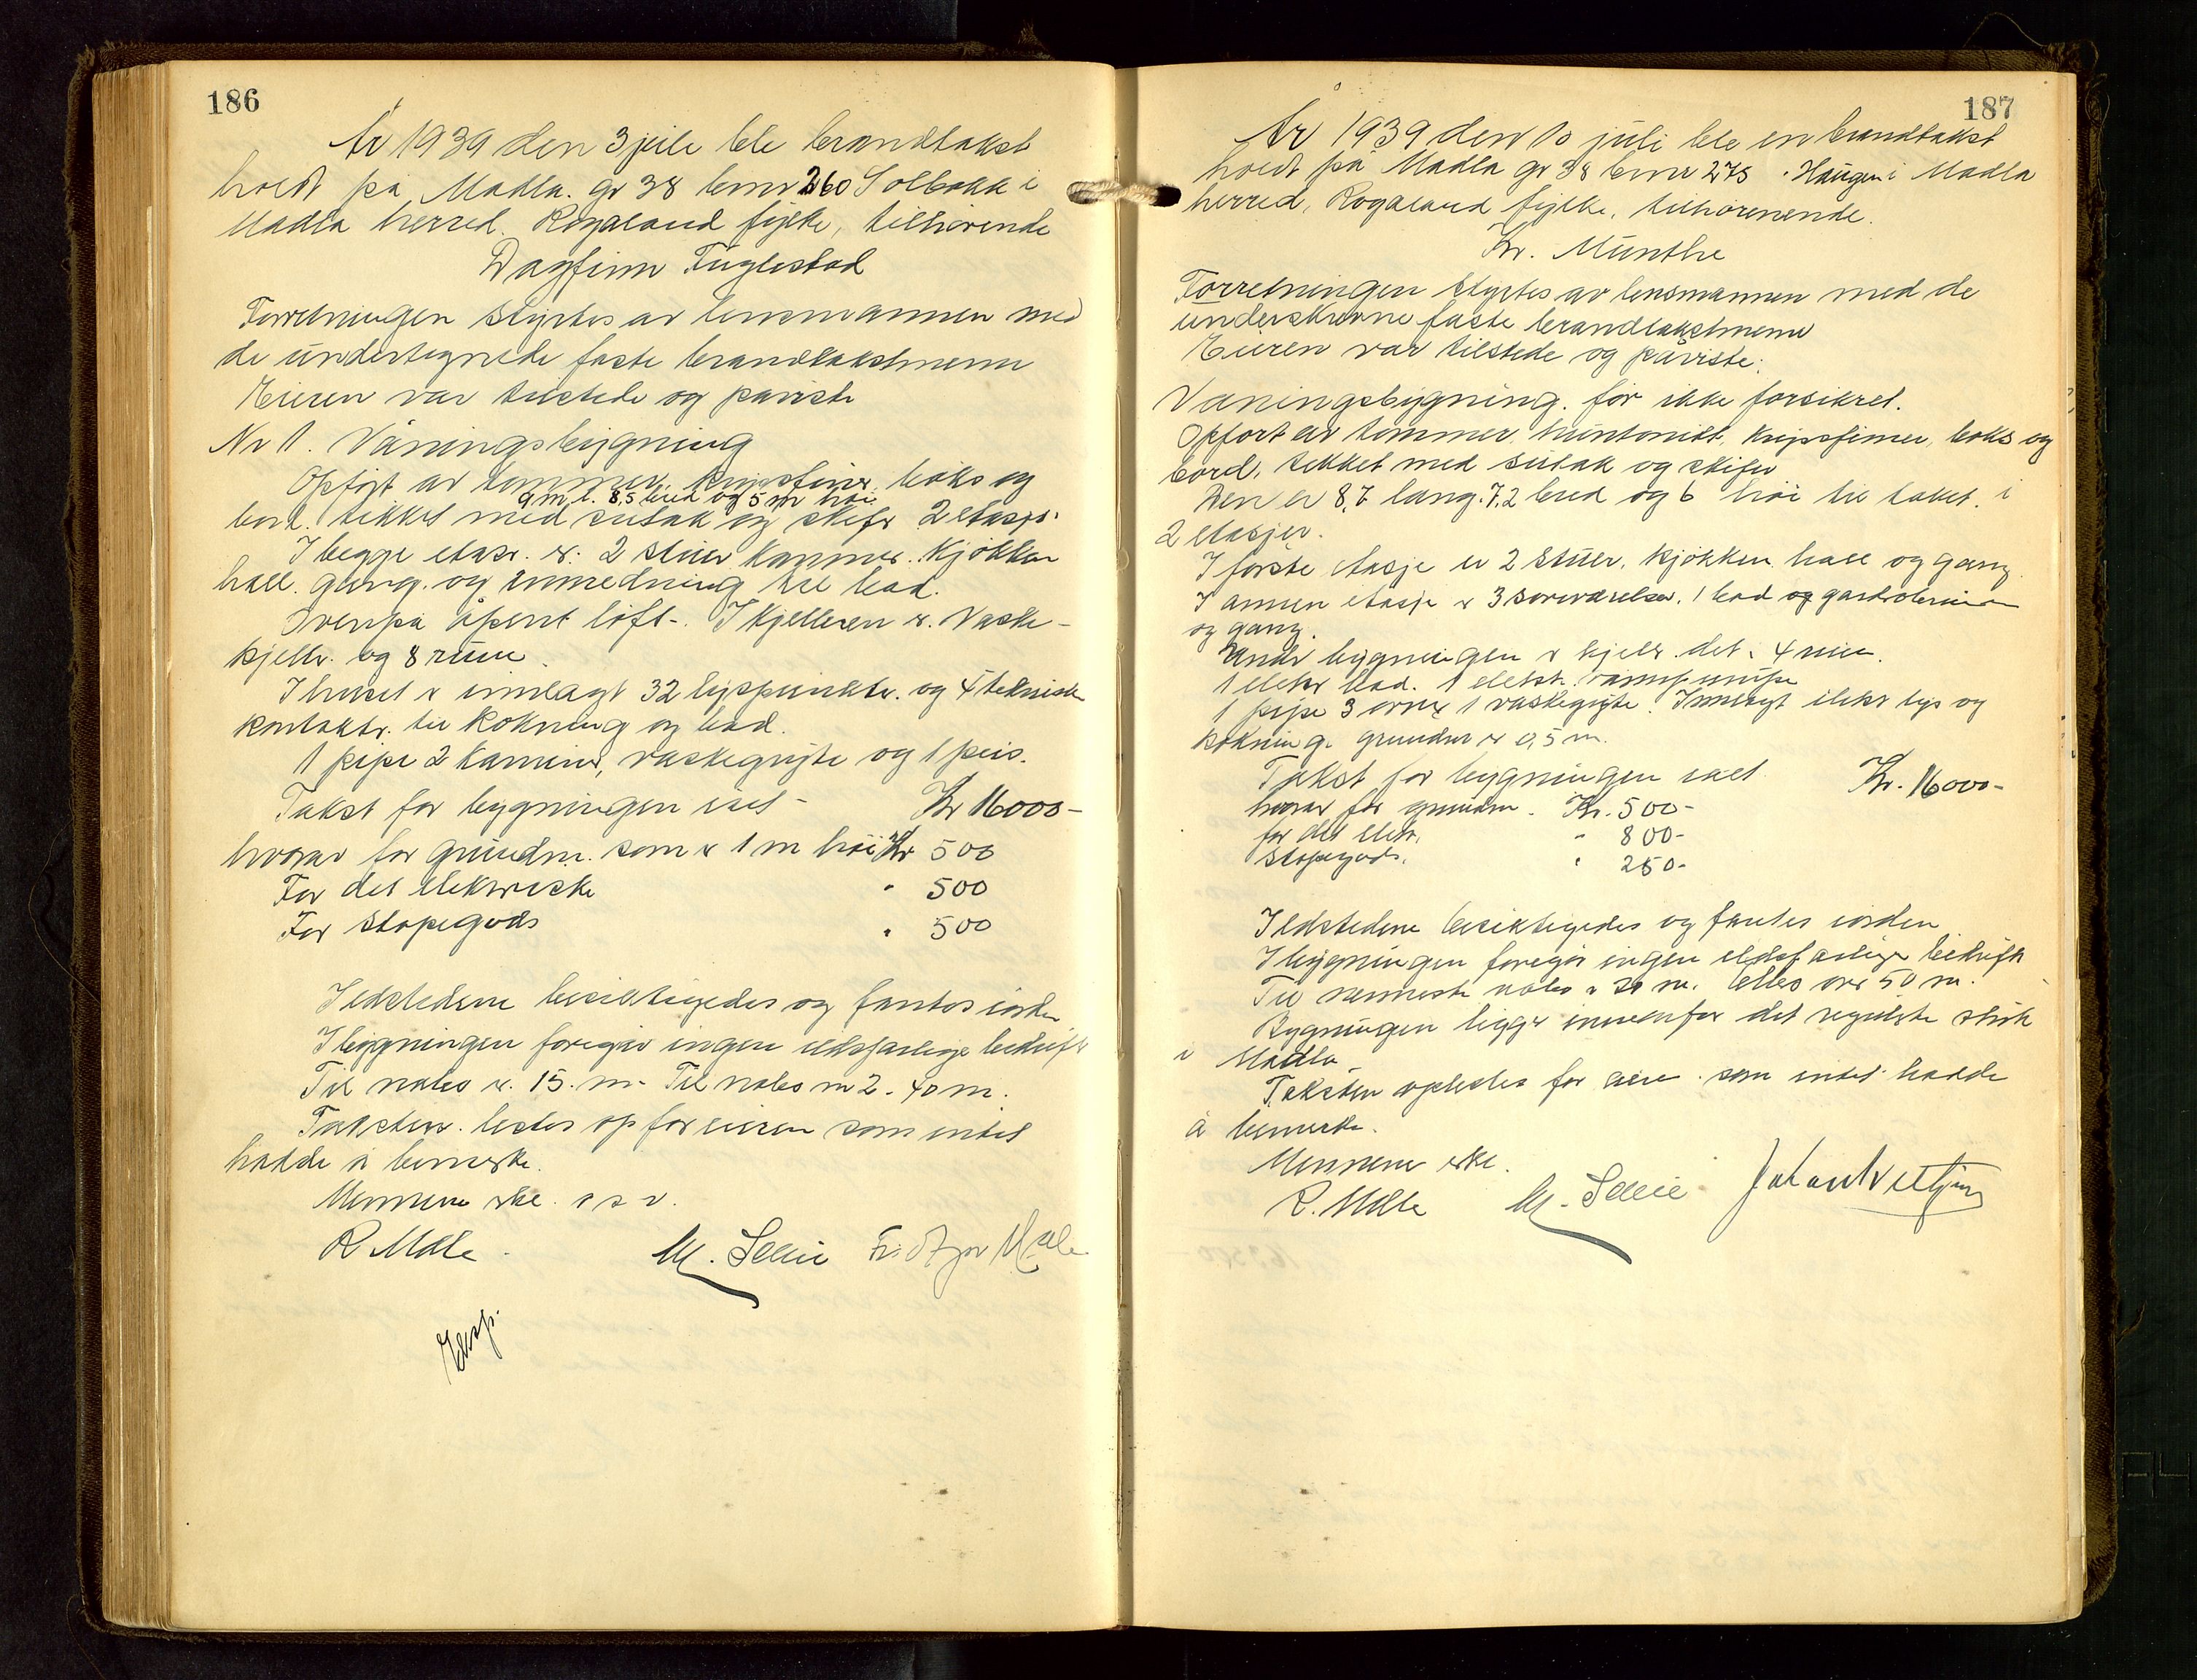 186
År 1939 den 3 juli ble brandtakst
holdt på Madla. gr 38 brnr 260 Solbakk i
Madla herred. Rogaland fylke, tilhørende
Dagfinn Fuglestad
Forretningen styrtes av lensmannen med
de undertegnede faste brandtakstmenn
Eieren var tilstede og påviste
Nr 1. Våningsbygning
Opført av tømmer. kryssfiner. boks og
9 m l. 8,5 bred og 5 m høi
bord. tekket med sutak og skifr 2 etasjs.
I begge etasr. er. 2 stuer kammer. kjøkken
hall. gang. og innredning til bad.
Ovenpå åpent loft-. I kjelleren er. Vaske-
kjellr. og 8 rum.
I huset er innlagt 32 lyspunkter. og 4 tekniske
kontaktr. til kokning og bad.
1 pipe 2 kaminer, vaskegryte og 1 peis.
Takst for bygningen sæl - Kr 16000-
hvorav for grundm. som er 1 m høi Kr 500
For det elektriske " 500
For støpegods " 500
Ildstedene besiktigedes og fantes iorden
I bygningen foregår ingen ildsfarlige bedrift
Til nabo er. 15. m- Til nabo nr 2. 40 m.
Taksten. lestes op for eieren som intet
hadde å bemerke.
Mennene erkl. s s v.
R Malle. M. Sellie Fridtjov Hale
Eksp.
187
År 1939 den 10 juli ble en brandtakst
holdt på Madla gr 38 brnr 275 . Haugen i Madla
herred, Rogaland fylke, tilhørenende.
Kr. Munthe
Forretningen styrtes av lensmannen med de
underskrevne faste brandtakstmenn
Eieren var tilstede og påviste.
Våningsbygning. før ikke forsikret.
Opført av tømmer, huntonitt, krysfiner, boks og
bord, tekket med sutak og skifer
Den er 8,7 lang. 7,2 bred og 6 høi til taket. i
2 etasjer.
I første etasje er 2 stuer, kjøkken, hall og gang.
I annen etasje er 3 soveværelser. 1 bad og
og gang.
Under bygningen er kjeller. det. 4 rum.
1 elekr bad. 1 elektr.
1 pipe 3 ovner 1 vaskegryte. Innlagt elekr lys og
kokning. grundm er 0,5 m.
Takst for bygningen sæl Kr. 16000-
hvorav for grundm. Kr. 500-
for det elekr. " 800-
støpegods. " 250-
Ildstedene besiktigedes og fantes iorden
I bygningen foregår ingen ildsfarlige bedrift
Til nermeste nabo er 20 m. Elles over 50 m.
Bygningen ligger innenfor det regulerte strøk
i Madla
Taksten oplestes for eieren. som intet hadde
å bemerke.
Mennene erkl.
R. Malle M. Sellie